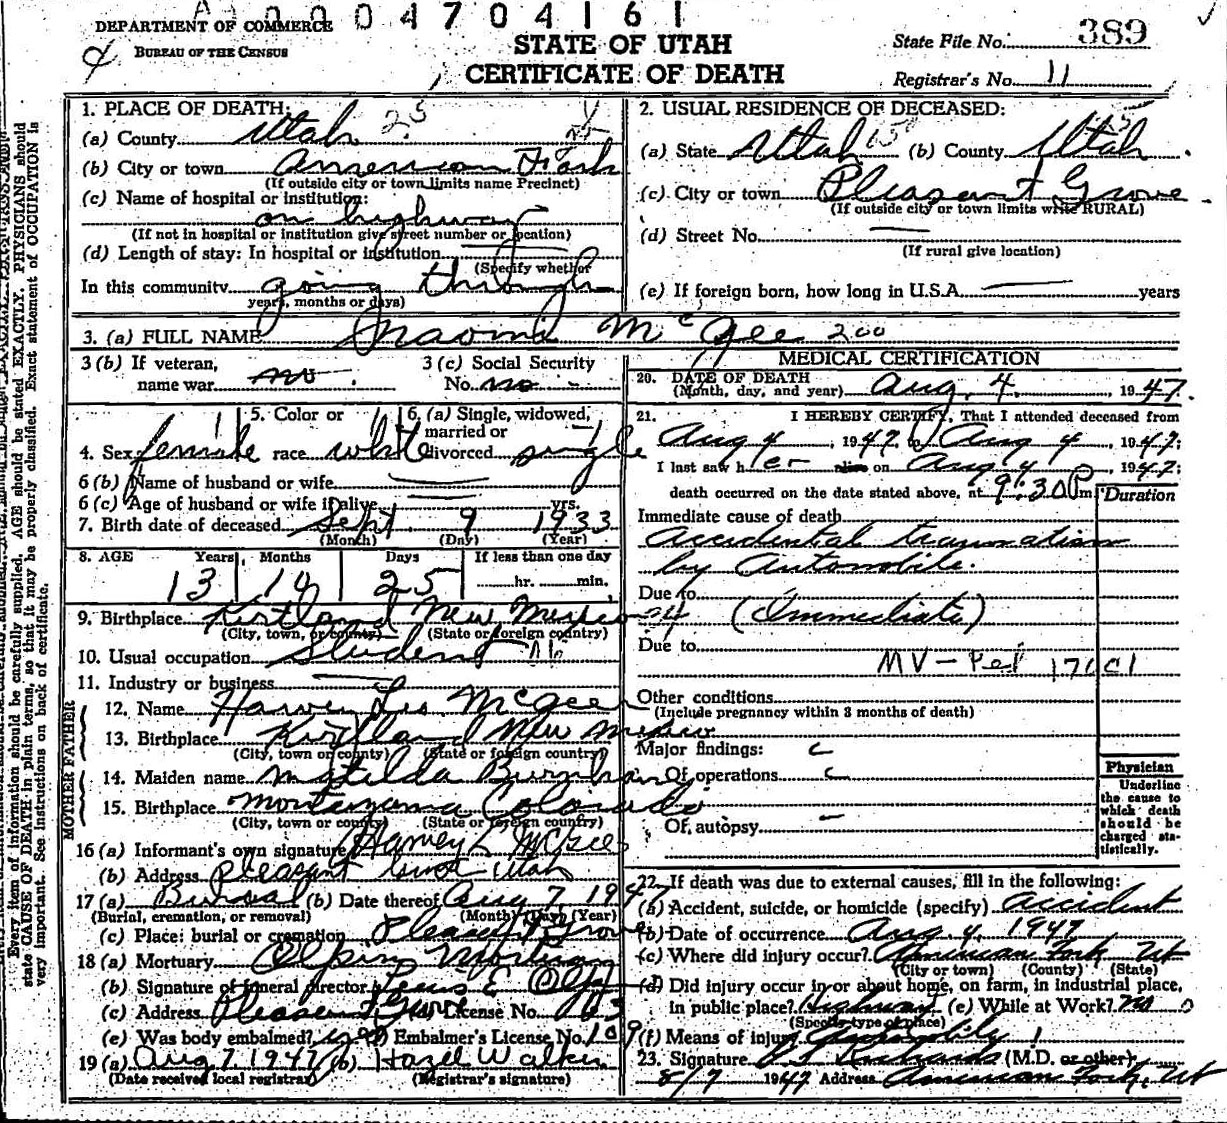 A 0004704161
DEPARTMENT OF COMMERCE
BUREAU OF THE CENSUS
STATE OF UTAH
CERTIFICATE OF DEATH
State File No. 389
Registrar's No. 11
1. PLACE OF DEATH:
(a) County Utah 25
(b) City or town American Fork
(If outside city or town limits name Precinct)
(c) Name of hospital or institution:
on highway
(If not in hospital or institution give street number or location)
(d) Length of stay: In hospital or institution
(Specify whether
In this community going through
years, months or days)
2. USUAL RESIDENCE OF DECEASED:
(a) State Utah (b) County Utah
(c) City or town Pleasant Grove
(If outside city or town limits write RURAL)
(d) Street No. —
(If rural give location)
(e) If foreign born, how long in U.S.A. — years
3. (a) FULL NAME Naomi McGee 200
3 (b) If veteran,
name war no
3 (c) Social Security
No. no
4. Sex female
5. Color or
race white
6. (a) Single, widowed,
married or
divorced single
6 (b) Name of husband or wife
6 (c) Age of husband or wife if alive yrs.
7. Birth date of deceased Sept. 9 1933
(Month) (Day) (Year)
8. AGE Years Months Days If less than one day
13 10 25 hr. min.
9. Birthplace Kirtland New Mexico
(City, town, or county) (State or foreign country)
10. Usual occupation Student
11. Industry or business
FATHER
12. Name Harvey Leo McGee
13. Birthplace Kirtland New Mexico
(City, town or county) (State or foreign country)
MOTHER
14. Maiden name Matilda Burnham
15. Birthplace Montezuma Colorado
(City, town or county) (State or foreign country)
16 (a) Informant's own signature Harvey L McGee
(b) Address Pleasant Grove Utah
17 (a) Burial (b) Date thereof Aug 7, 1947
(Burial, cremation, or removal) (Month) (Day) (Year)
(c) Place: burial or cremation Pleasant Grove
18 (a) Mortuary Olpin Mortuary
(b) Signature of funeral director Lewis E Olpin
(c) Address Pleasant Grove License No.
(e) Was body embalmed? yes Embalmer's License No. 109
19 (a) Aug 7, 1947 (b) Hazel Walker
(Date received local registrar) (Registrar's signature)
MEDICAL CERTIFICATION
20. DATE OF DEATH
(Month, day, and year) Aug. 4. 1947.
21. I HEREBY CERTIFY, That I attended deceased from
Aug 4, 1947 to Aug 4, 1947;
I last saw her alive on Aug 4, 1947;
death occurred on the date stated above, at 9:30 P m.
Duration
Immediate cause of death
Accidental
by Automobile.
Due to (Immediate)
Due to
MV - Ped 170C1
Other conditions
(Include pregnancy within 3 months of death)
Major findings:
Of operations
Of autopsy —
Physician
Underline
the cause to
which death
should be
charged sta-
tistically.
22. If death was due to external causes, fill in the following:
(a) Accident, suicide, or homicide (specify) Accident
(b) Date of occurrence Aug. 4, 1947
(c) Where did injury occur? American Fork Ut
(City or town) (County) (State)
(d) Did injury occur in or about home, on farm, in industrial place,
in public place? Highway (e) While at Work? no
(Specify type of place)
(f) Means of injury Automobile
23. Signature Richards (M.D. or other)
8/7 1947 Address American Fork, Ut
Every item of information should be carefully supplied. AGE should be stated EXACTLY. PHYSICIANS should
state CAUSE OF DEATH in plain terms, so that it may be properly classified. Exact statement of OCCUPATION is
very important. See instructions on back of certificate.